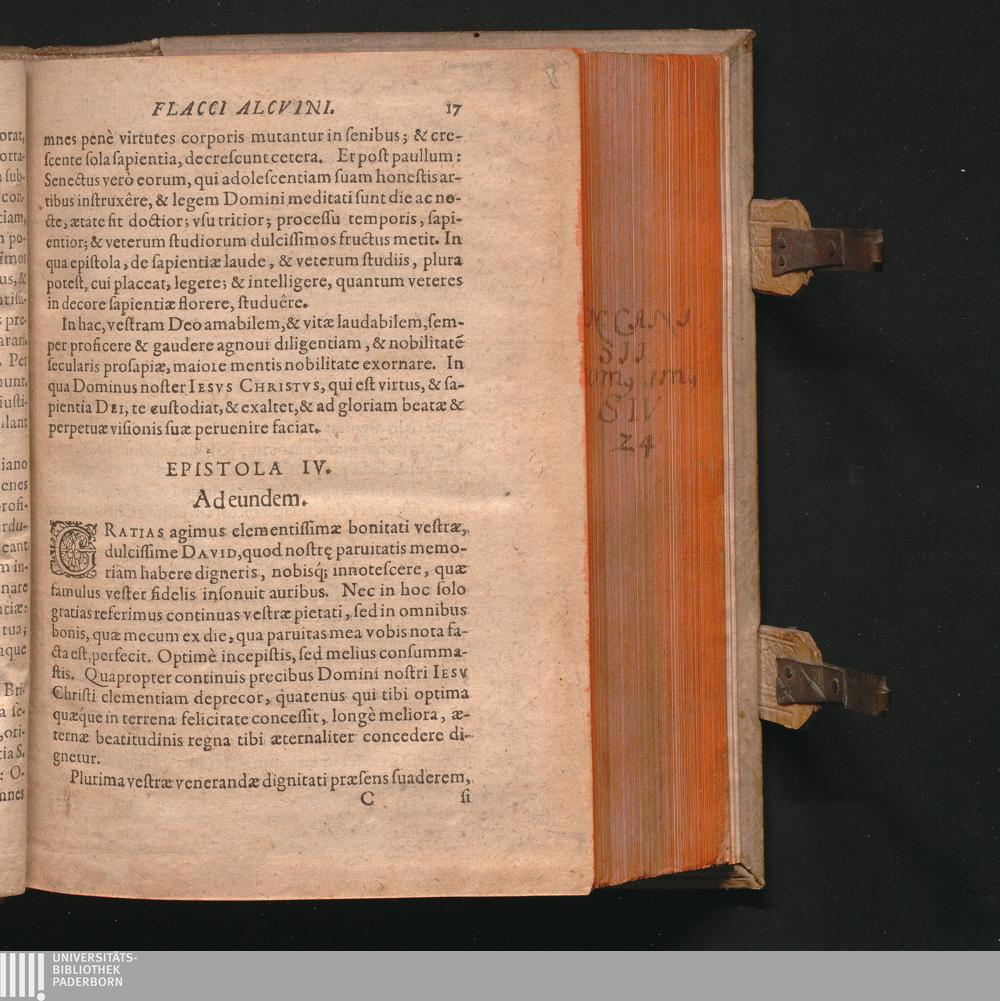 FLACCI ALCVINI. 17
mnes penè virtutes corporis mutantur in ſenibus; & cre-
ſcente ſola ſapientia, decreſcunt cetera. Et poſt paullum:
Senectus verò eorum, qui adoleſcentiam ſuam honeſtis ar-
tibus inſtruxêre, & legem Domini meditati ſunt die ac no-
cte, ætate fit doctior; vſu tritior; proceſſu temporis, ſapi-
entior; & veterum ſtudiorum dulciſſimos fructus metit. In
qua epiſtola, de ſapientiæ laude, & veterum ſtudiis, plura
poteſt, cui placeat, legere; & intelligere, quantum veteres
in decore ſapientiæ florere, ſtuduêre.
In hac, veſtram Deo amabilem, & vitæ laudabilem, ſem-
per proficere & gaudere agnoui diligentiam, & nobilitatē
ſecularis proſapiæ, maiore mentis nobilitate exornare. In
qua Dominus noſter IESVS CHRISTVS, qui eſt virtus, & ſa-
pientia DEI, te cuſtodiat, & exaltet, & ad gloriam beatæ &
perpetuæ viſionis ſuæ peruenire faciat.
EPISTOLA IV.
Ad eundem.
GRATIAS agimus clementiſſimæ bonitati veſtræ,
dulciſſime DAVID, quod noſtrę paruitatis memo-
riam habere digneris, nobisq́; innoteſcere, quæ
famulus veſter fidelis inſonuit auribus. Nec in hoc ſolo
gratias referimus continuas veſtræ pietati, ſed in omnibus
bonis, quæ mecum ex die, qua paruitas mea vobis nota fa-
cta eſt, perfecit. Optimè incepiſtis, ſed melius conſumma-
ſtis. Quapropter continuis precibus Domini noſtri IESV
Chriſti clementiam deprecor, quatenus qui tibi optima
quæque in terrena felicitate conceſſit, longè meliora, æ-
ternæ beatitudinis regna tibi æternaliter concedere di-
gnetur.
Plurima veſtræ venerandæ dignitati præſens ſuaderem,
C ſi
CANI
SII
SIV
24
orat,
orta-
ſub-
con-
tiam,
po-
imos
us, &
pre-
Per
iuſti-
lant
iano
enes
rofi-
rdu-
eant
m in-
nare
tiæ:
tua;
aque
Bri-
a ſe-
ori-
tia S.
: O-
mnes
UNIVERSITÄTS-
BIBLIOTHEK
PADERBORN